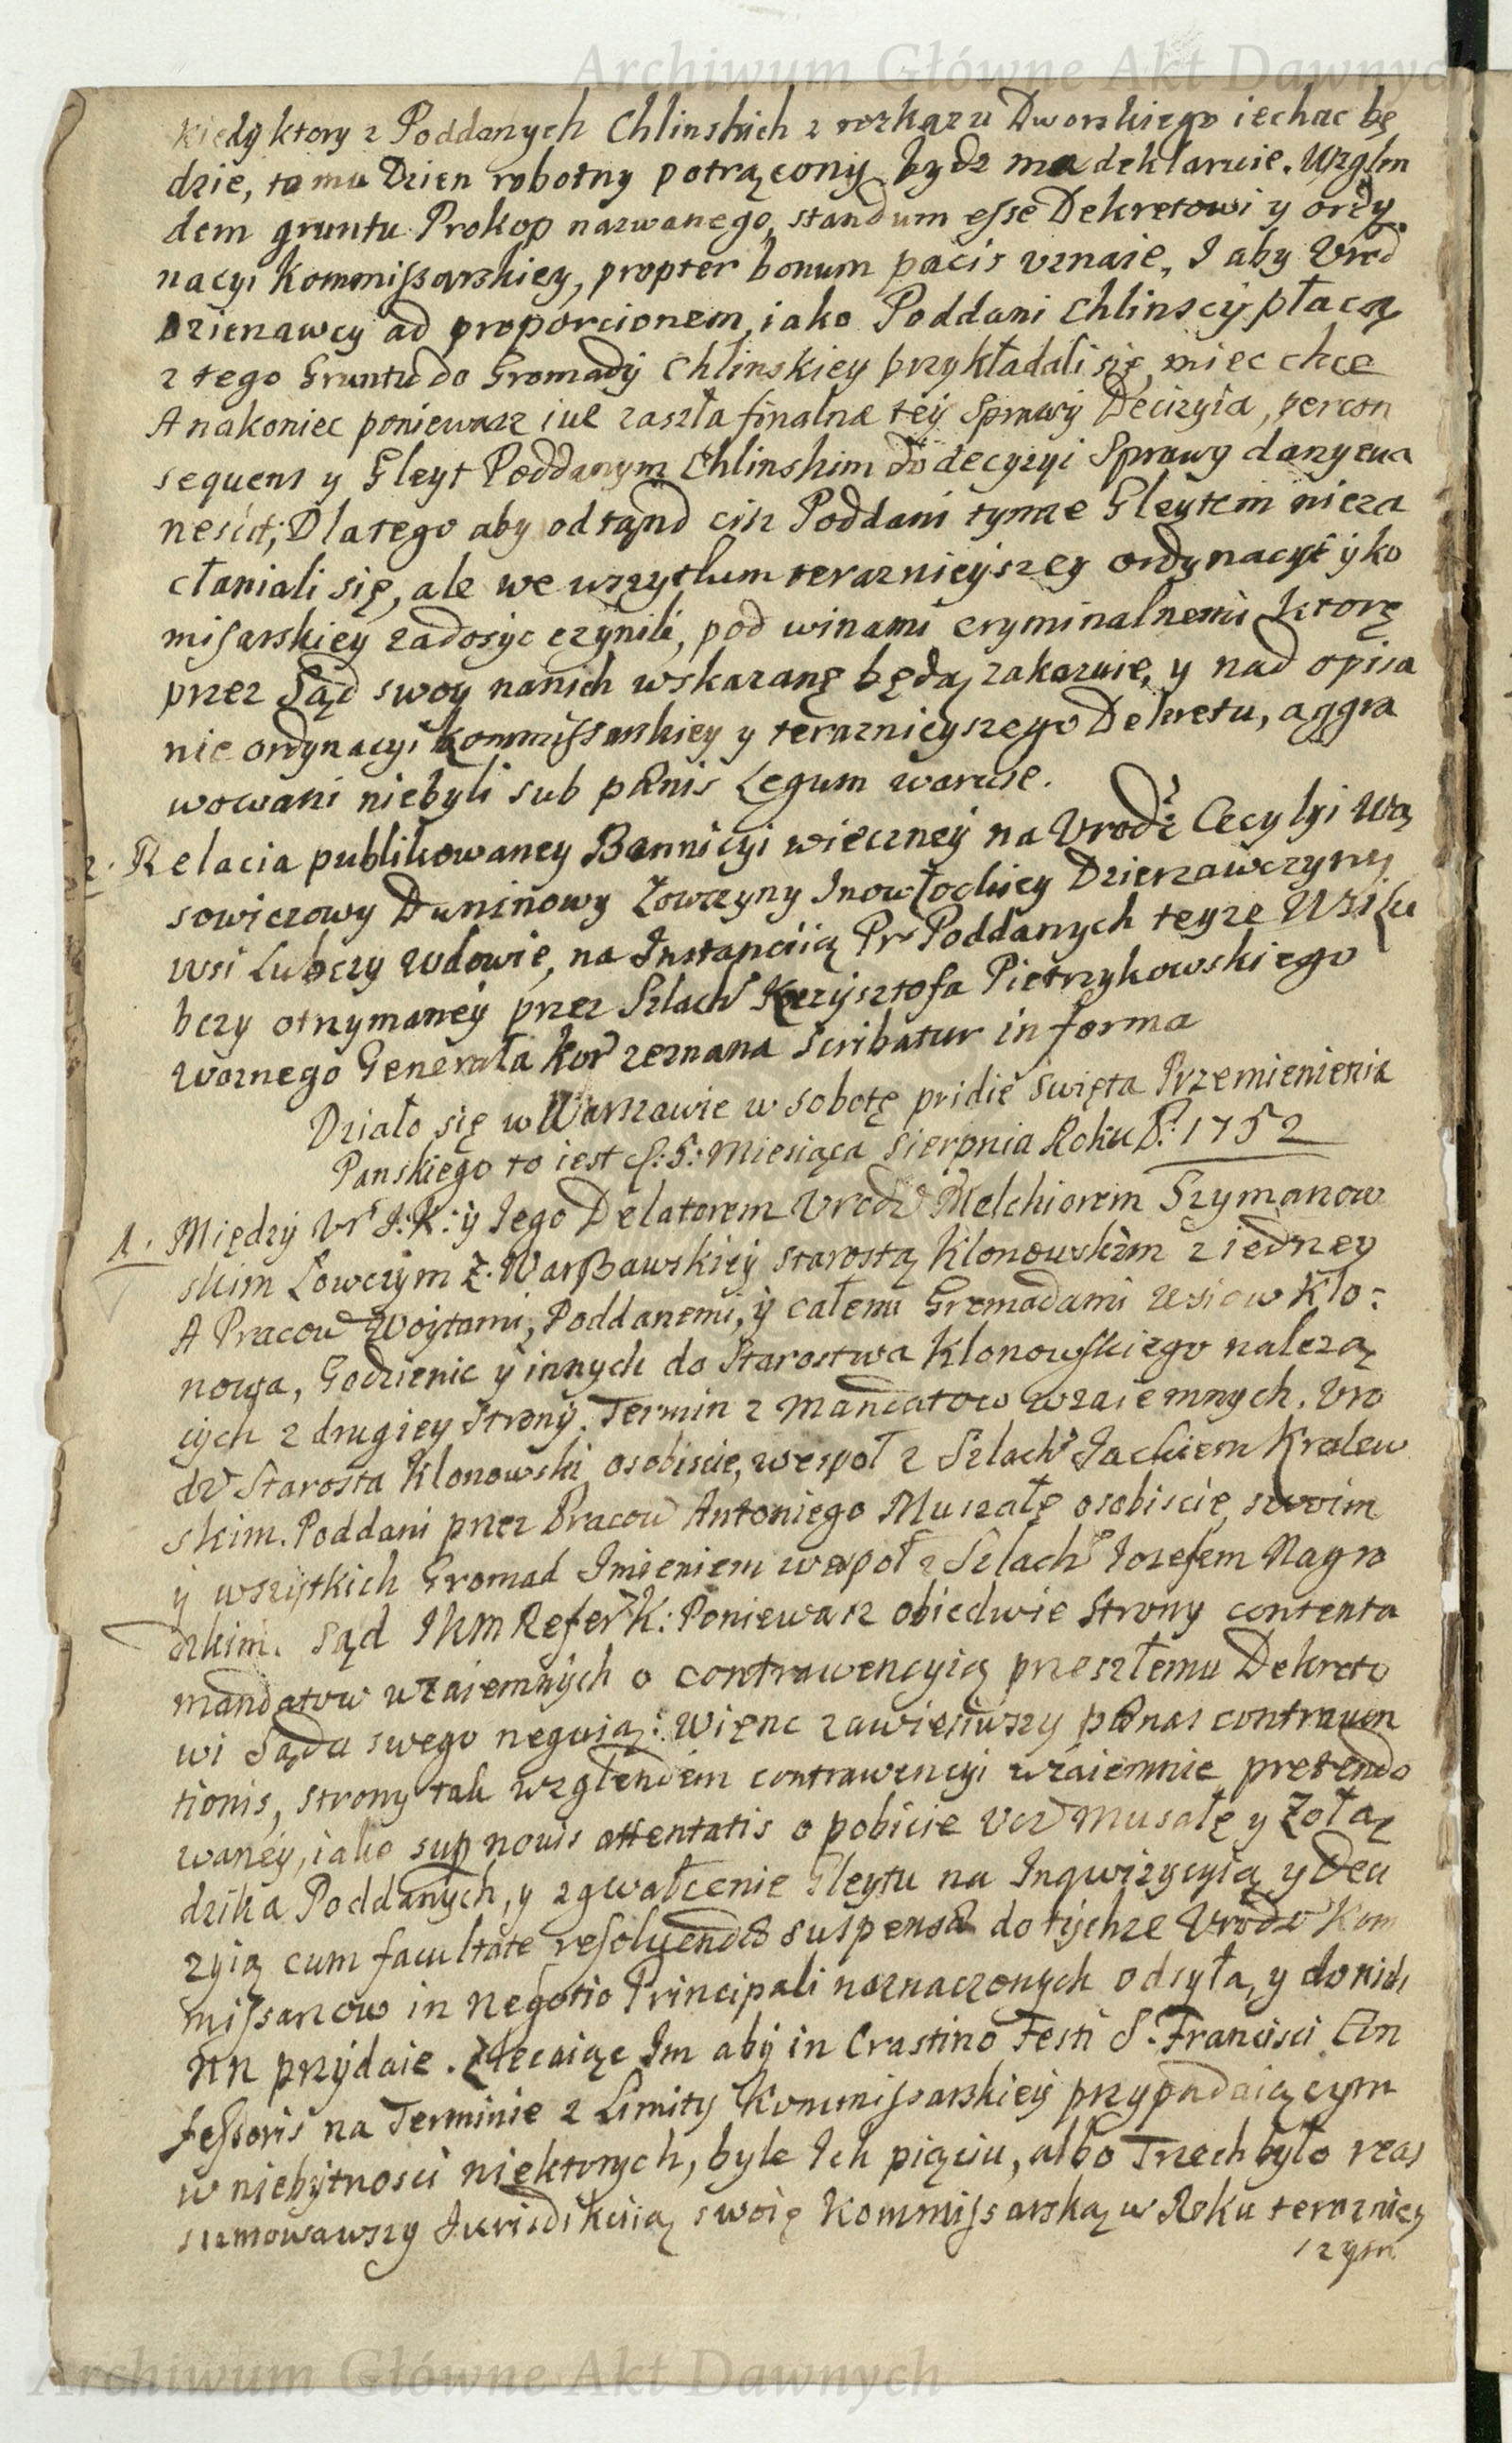 Archiwum Główne Akt Dawnych
kiedy ktory z Poddanych Chlinskich z rozkazu Dworskiego iechac bę
dzie, temu Dzien robotny potrącony bydz ma deklaruie. Wzglen
dem gruntu Prokop nazwanego, standum esse Dekretowi y ordy
nacyi Kommissarskiey, propter bonum pacis uznaie, J aby Urod
Dzierzawcy ad proporcionem, iako Poddani Chlinscy płacą
z tego Gruntu do Gromady Chlinskiey przykładali się, miec chce
A nakoniec poniewasz iuz zaszła finalna tey Sprawy Decizyia, percon
sequens y Gleyt Poddanym Chlinskim do decyzyi Sprawy dany eua
nescit; Dlatego aby odtąnd cisz Poddani tymze Gleytem nieza
cłaniali się, ale we wszytkum terazniejszey ordynacyi y ko
misarskiey zadosyc czynili, pod winami cryminalnemi ktorę
przez Sąd swoy nanich wskazanę będą, zakazuie, y nad opisa
nie ordynacyi Kommissarskiey y terazniejszego Dekretu, aggra
wowani niebyli sub pænis Legum waruie.
2. Relacia publikowaney Bannicyi wieczney na Urodz Cecylyi Wą
sowiczowy Duninowy Łowczyny Inowłockiey Dzierzawczyny
wsi Lubczy wdowie, na Instanciią Pr Poddanych teyze Wsi Lu
bczy otrzymaney przez Szlach Krzysztofa Pietrzykowskiego
woznego Generała Kor zeznana scribatur in forma
Działo się w Warszawie w sobotę pridie swięta Przemienienia
Panskiego to iest d: 5: Miesiąca Sierpnia Roku P: 1752
1. Między Ur J: K: y Jego Delatorem Urodz Melchiorem Szymanow
skim Łowczym Z. Warszawskiey Starostą Klonowskim z iedney
A Pracow Woytami, Poddanemi, y całemi Gromadami Wsiow Klo:
nowa, Godzienic y innych do Starostwa Klonowskiego nalezą
cych z drugiey Strony. Termin z Mandatow wzaiemnych. Uro
dz Starosta Klonowski osobiscie, wespoł z Szlach Jackiem Kralew
skim. Poddani przez Pracow Antoniego Muszałę osobiscie, swoim
y wszystkich Gromad Jmieniem wespoł z Szlach Jozefem Nagro
dzkim. Sąd JKM Refer K: Poniewasz obiedwie Strony contenta
mandatow wzaiemnych o contrawencyią przeszłemu Dekreto
wi Sądu swego neguią: Więnc zawiesiwszy pænas contrauen
tionis, strony tak wzglendem contrawencyi wzaiemnie pretendo
waney, iako sup nouis attentatis o pobicie Ucz Musałę y Zołą
dzika Poddanych, y zgwałcenie Gleytu na Inqwizycyią y Deci
zyią cum facultate resoluendæ suspensæ do tychze Urodz Kom
missarzow in negotio Principali naznaczonych odsyła, y do nich
NN przydaie. Zlecaiąc Im aby in Crastino Festi S. Francisci Con
fessoris na Terminie z Limity Kommissarskiey przypadaiącym
w niebytnosci niektorych, byle Ich pięciu, albo Trzech było reas
sumowawszy Jurisdikciią swoię Kommissarską w Roku terazniey
szym
Archiwum Główne Akt Dawnych